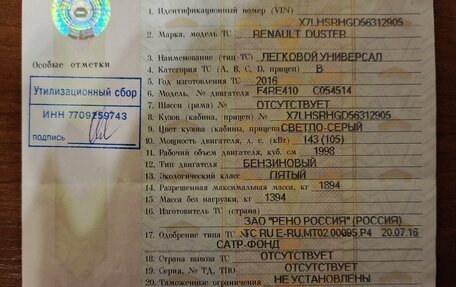 1. Идентификационный номер (VIN) X7LHSRHGD56312905
2. Марка, модель ТС RENAULT DUSTER
3. Наименование (тип ТС) ЛЕГКОВОЙ УНИВЕРСАЛ
Особые отметки
4. Категория ТС (A, B, C, D, прицеп) B
5. Год изготовления ТС 2016
6. Модель, № двигателя F4RE410 C054514
7. Шасси (рама) № ОТСУТСТВУЕТ
8. Кузов (кабина, прицеп) № X7LHSRHGD56312905
9. Цвет кузова (кабины, прицепа) СВЕТЛО-СЕРЫЙ
10. Мощность двигателя, л. с. (кВт) 143 (105)
11. Рабочий объем двигателя, куб. см 1998
12. Тип двигателя БЕНЗИНОВЫЙ
13. Экологический класс ПЯТЫЙ
14. Разрешенная максимальная масса, кг 1894
15. Масса без нагрузки, кг 1394
16. Изготовитель ТС (страна)
ЗАО "РЕНО РОССИЯ" (РОССИЯ)
17. Одобрение типа ТС № ТС RU E-RU.МТ02.00095.Р4 20.07.16
САТР-ФОНД
18. Страна вывоза ТС ОТСУТСТВУЕТ
19. Серия, № ТД, ТПО ОТСУТСТВУЕТ
20. Таможенные ограничения НЕ УСТАНОВЛЕНЫ
Утилизационный сбор
ИНН 7709259743
подпись